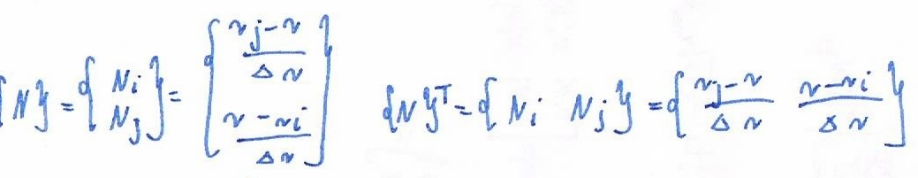 {N} = {N_i N_j} = {(r_j - r)/(Δr) (r - r_i)/(Δr)} {N}^T = {N_i N_j} = {(r_j - r)/(Δr) (r - r_i)/(Δr)}